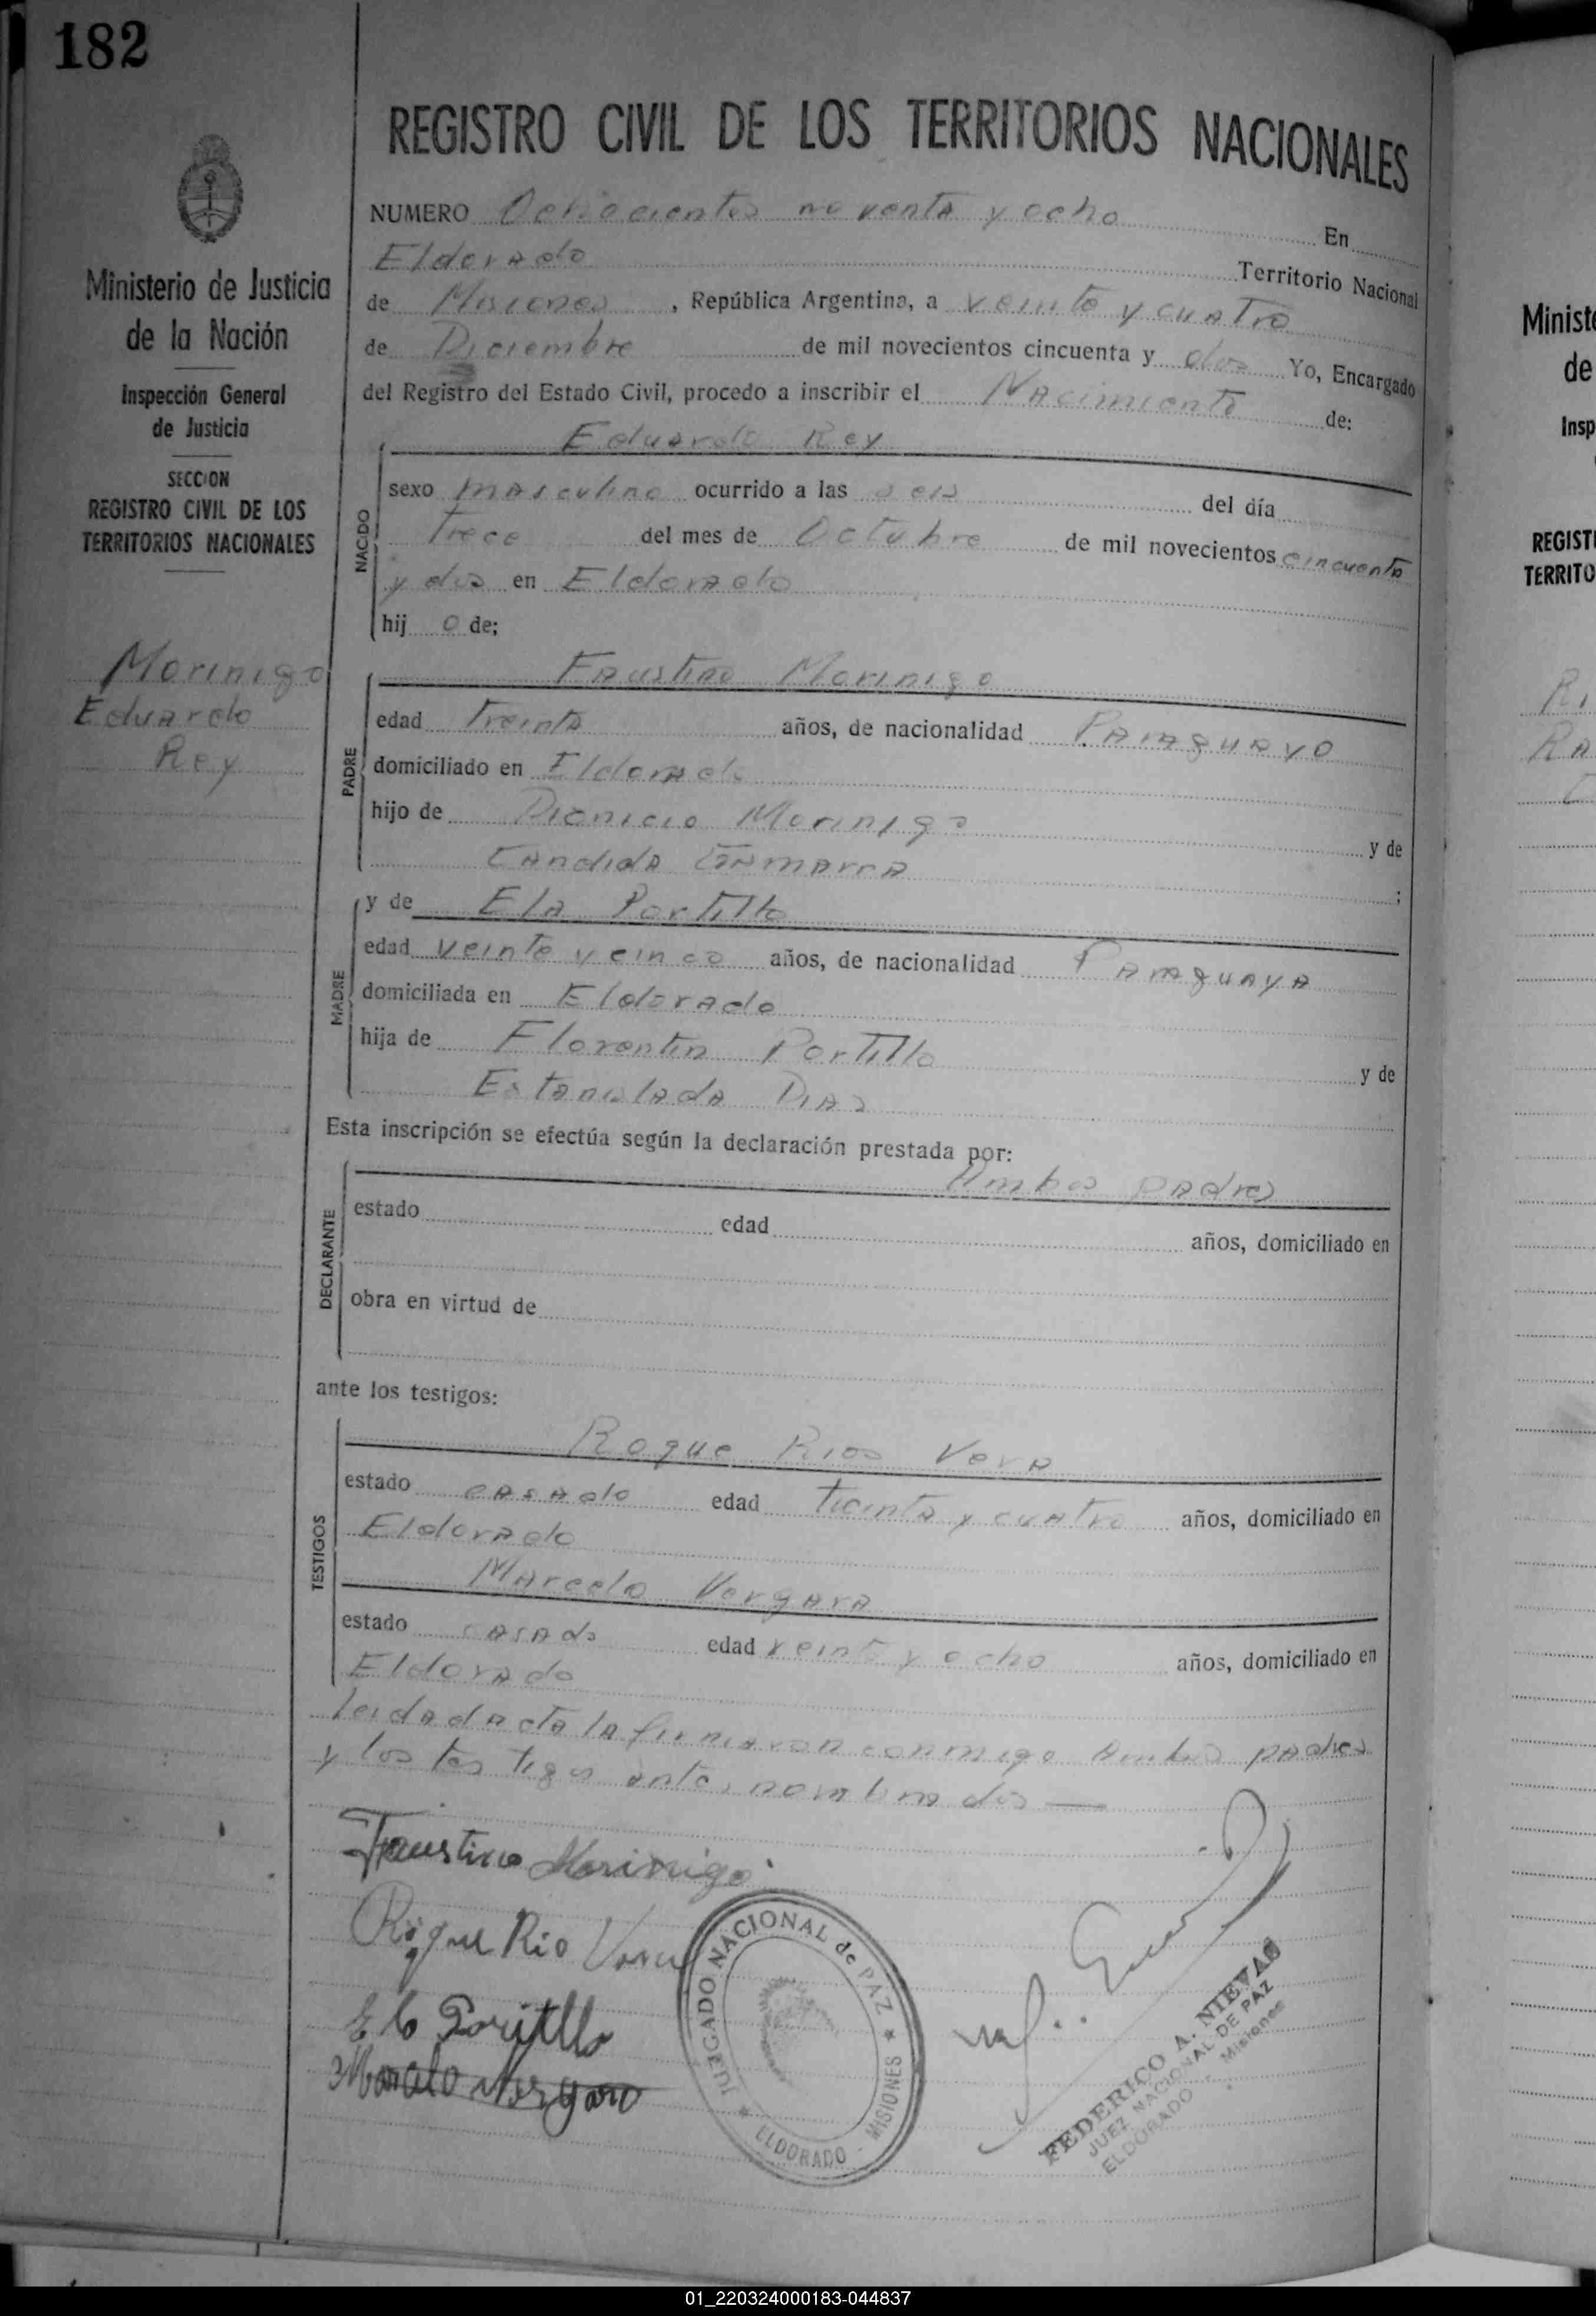 182
REGISTRO CIVIL DE LOS TERRITORIOS NACIONALES
Ministerio de Justicia
de la Nación
Inspección General
de Justicia
SECCION
REGISTRO CIVIL DE LOS
TERRITORIOS NACIONALES
Morinigo
Eduardo
Rey
NUMERO Ochocientos noventa y ocho En
Eldorado Territorio Nacional
de Misiones, República Argentina, a veinte y cuatro
de Diciembre de mil novecientos cincuenta y dos Yo, Encargado
del Registro del Estado Civil, procedo a inscribir el Nacimiento de:
Eduardo Rey
NACIDO
sexo masculino ocurrido a las seis del día
Trece del mes de Octubre de mil novecientos cincuenta
y dos en Eldorado
hij o de;
Faustino Morinigo
PADRE
edad Treinta años, de nacionalidad Paraguayo
domiciliado en Eldorado
hijo de Dionicio Morinigo y de
Candida Gamarra ;
MADRE
y de Ela Portillo
edad veinte y cinco años, de nacionalidad Paraguaya
domiciliada en Eldorado
hija de Florentin Portillo y de
Estanislada Dias
Esta inscripción se efectúa según la declaración prestada por:
Ambos padres
DECLARANTE
estado edad años, domiciliado en
obra en virtud de
ante los testigos:
TESTIGOS
Roque Rios Vera
estado casado edad treinta y cuatro años, domiciliado en
Eldorado
Marcelo Vergara
estado casado edad veinte y ocho años, domiciliado en
Eldorado
leida el acta la firmaron conmigo ambos padres
y los testigos antes nombrados —
Faustino Morinigo
Roque Rio Vera
Ela Portillo
Marcelo Vergara
JUZGADO NACIONAL de PAZ
ELDORADO - MISIONES
FEDERICO A. NIEVAS
JUEZ NACIONAL DE PAZ
ELDORADO - Misiones
Minist
de
Insp
REGIST
TERRITO
01_220324000183-044837